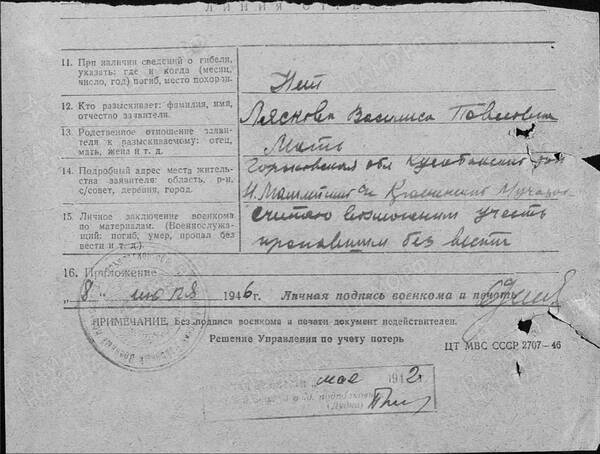 11. При наличии сведений о гибели,
указать: где и когда (месяц,
число, год) погиб, место похорон.
Нет
12. Кто разыскивает: фамилия, имя,
отчество заявителя.
Ляскова Василиса Павловна
13. Родственное отношение заяви-
теля к разыскиваемому: отец,
мать, жена и т. д.
Мать
14. Подробный адрес места житель-
ства заявителя: область, р-н,
с/совет, деревня, город.
Горьковская обл
15. Личное заключение военкома
по материалам. (Военнослужа-
щий: погиб, умер, пропал без
вести и т. д.).
Считаю возможным учесть
пропавшим без вести
16. Приложение
"8" июля 1946 г. Личная подпись военкома и печать
ПРИМЕЧАНИЕ. Без подписи военкома и печати документ недействителен.
Решение Управления по учету потерь
ЦТ МВС СССР 2707—46
мае 1942г